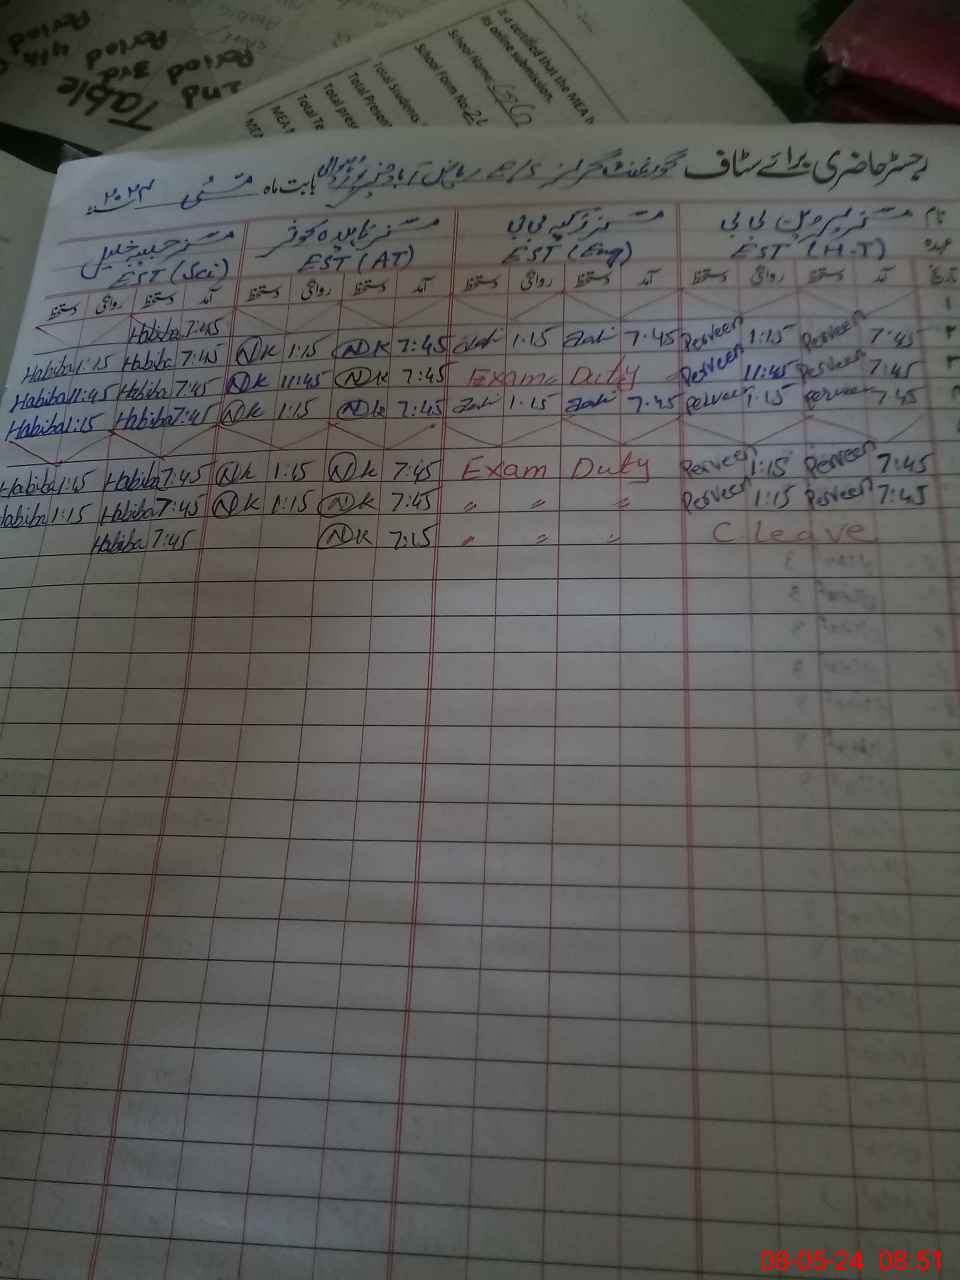 Table
2nd Period
3rd Period
4th
Period
is certified that the MEA h
its online submission.
School Name:
School Form No:
Total Students
Total Present
Total pres
Total Te
MEA
رجسٹر حاضری برائے سٹاف گورنمنٹ گرلز بابت ماہ مئی ۲۰۲۴
نام مسز پروین بی بی مسز مسز مسز حبیبہ خلیل
عہدہ EST (H.T) EST (Eng) EST (AT) EST (Sci)
تاریخ آمد دستخط روانگی دستخط آمد دستخط روانگی دستخط آمد دستخط روانگی دستخط آمد دستخط روانگی دستخط
۱
Habiba 7:45
Habiba 1:15 Habiba 7:45 NK 1:15 NK 7:45 1:15 7:45 Perveen 1:15 Perveen 7:45 ۲
Habiba 11:45 Habiba 7:45 NK 11:45 NK 7:45 Exam Duty Perveen 11:45 Perveen 7:45 ۳
Habiba 1:15 Habiba 7:45 NK 1:15 NK 7:45 1:15 7:45 Perveen 1:15 Perveen 7:45
Habiba 1:15 Habiba 7:45 NK 1:15 NK 7:45 Exam Duty Perveen 1:15 Perveen 7:45
Habiba 1:15 Habiba 7:45 NK 1:15 NK 7:45 " " " Perveen 1:15 Perveen 7:45
Habiba 7:45 NK 7:15 " " " C leave
08-05-24 08:51